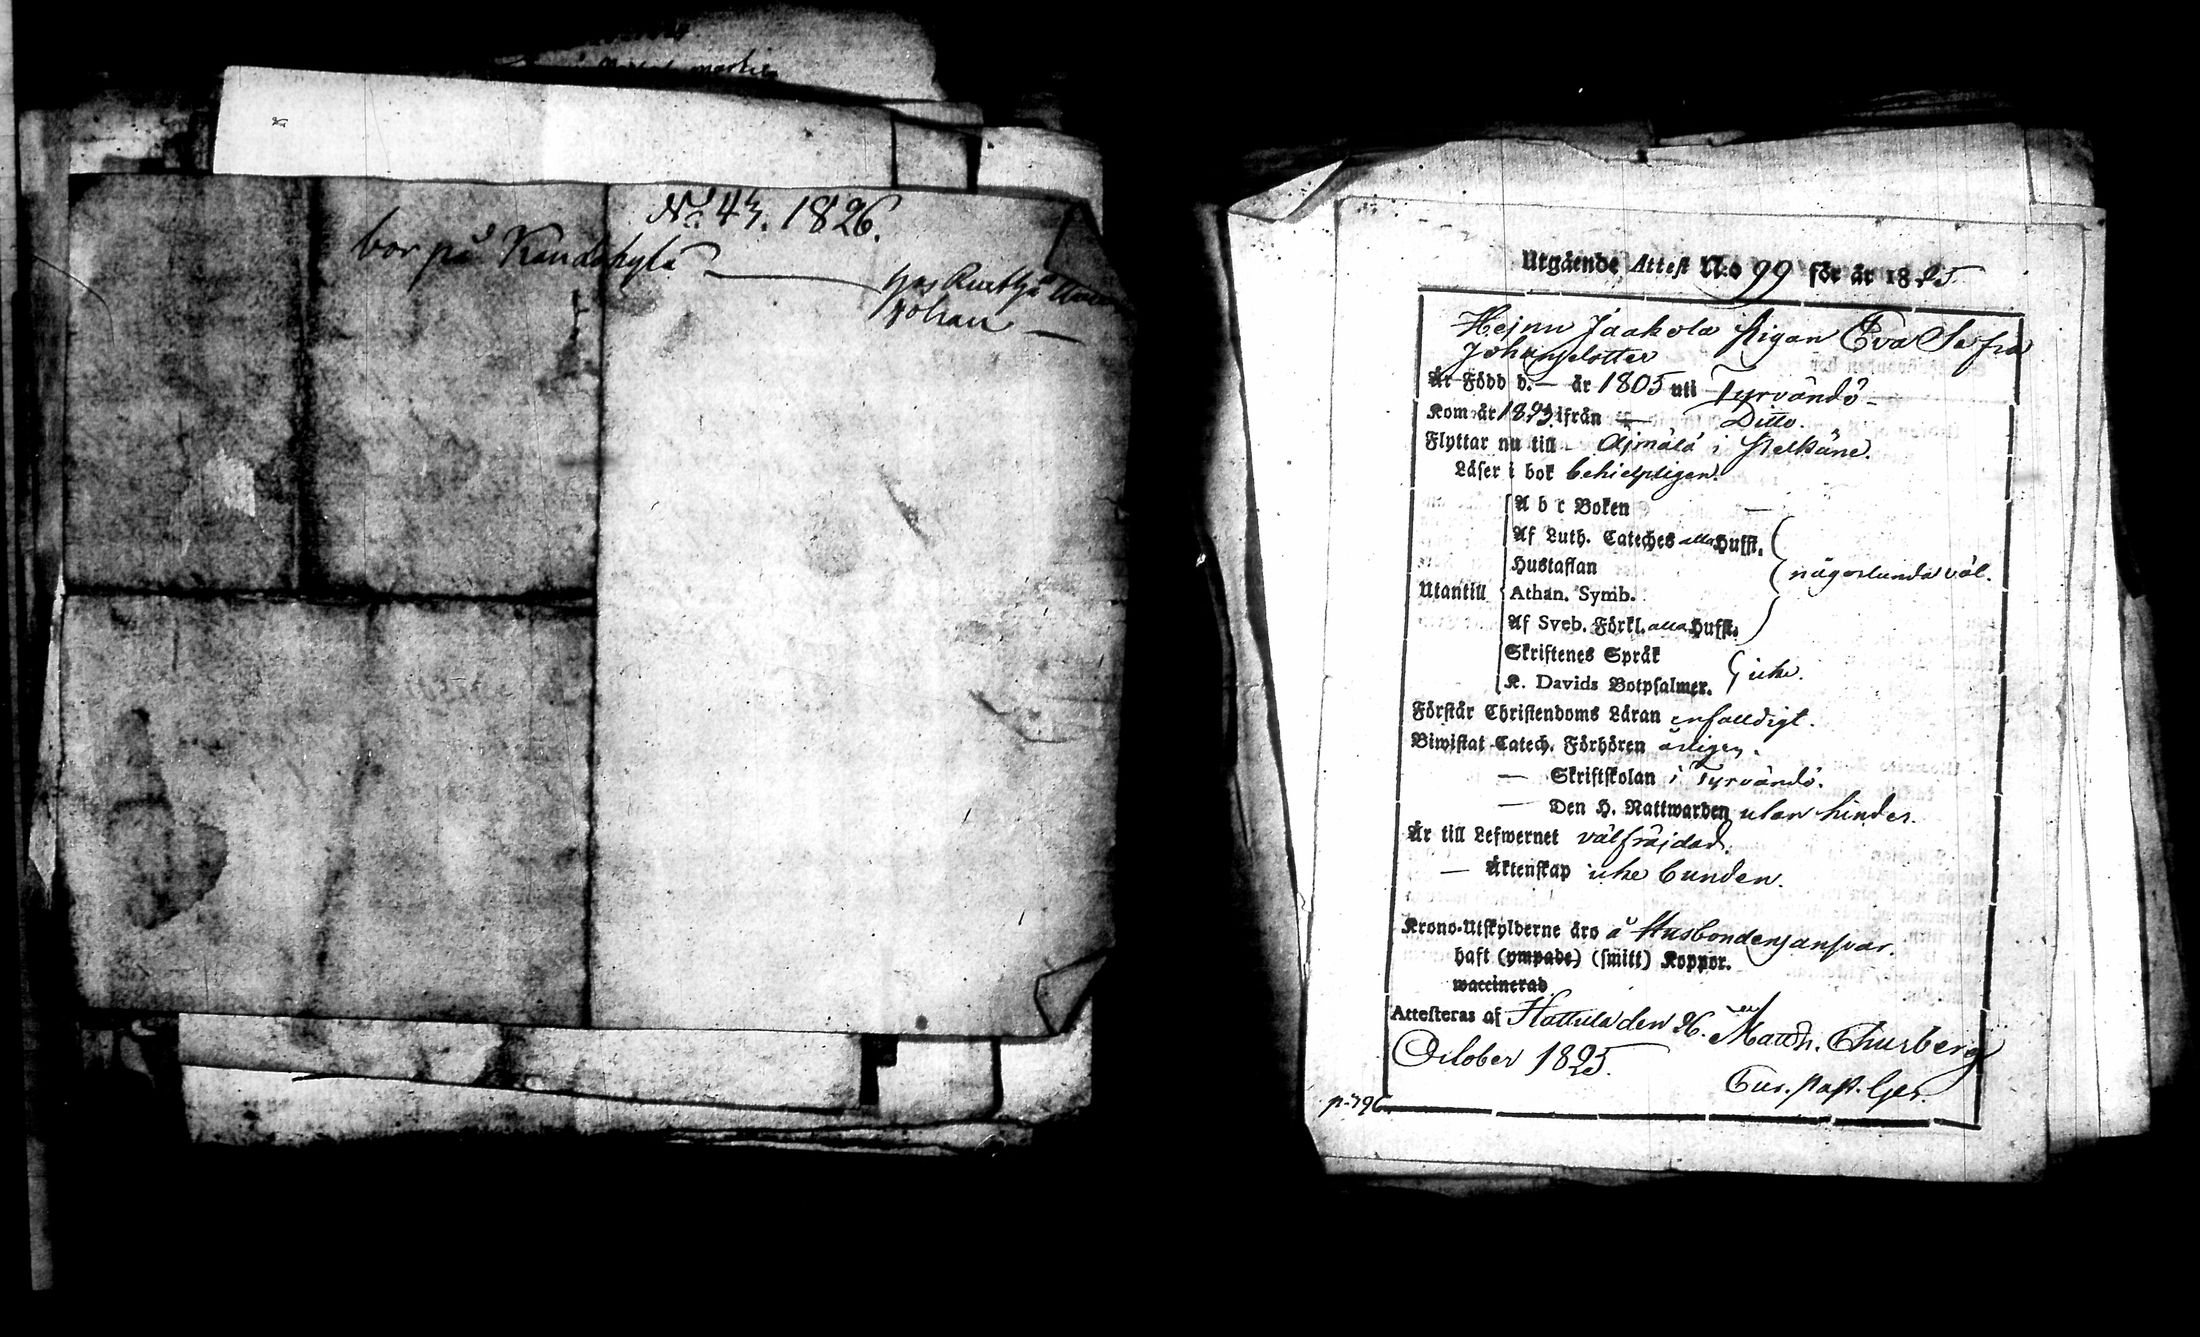 No 43. 1826.
bor på Kandakylä — hos Runthi
Johan —
Utgående Attest N:o 99 för år 1825
Heinu Jaakola Pigan Eva Sofia
Johansdotter
Är Född d. — år 1805 uti Tyrvändö —
Kom år 1823 ifrån — Ditto.
Flyttar nu till Äimälä i Pelkäne.
Läser i bok behielpligen.
A b c Boken —
Af Luth. Cateches alla Hufst.
Hustaflan
någorlunda väl.
Utantill Athan. Symb.
Af Sveb. Förkl. alla Hufst.
Skriftenes Språk
K. Davids Botpsalmer. icke.
Förstår Christendoms Läran enfalldigt.
Biwistat Catech. Förhören årligen.
— Skriftskolan i Tyrvändö.
— Den H. Nattwarden utan hinder
Är till Lefwernet välfräjdad.
— Äktenskap icke bunden.
Krono-Utskylderne äro å Husbondens ansvar.
haft (ympade) (smitt) Koppor.
waccinerad
Attesteras af Hattula den 26. Matth. Thurberg
October 1825.
Cur. Past. Ger.
p. 796